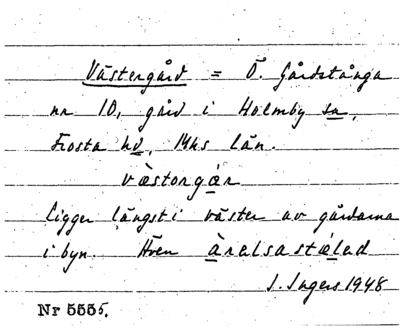 Västergård = Ö. Gårdstånga
nr 10, gård i Holmby sn,
Frosta hd, Mhs län.
væstorgàr
ligger längst i väster av gårdarna
i byn. Även àralsastàlad
I. Ingers 1948
Nr 5555.